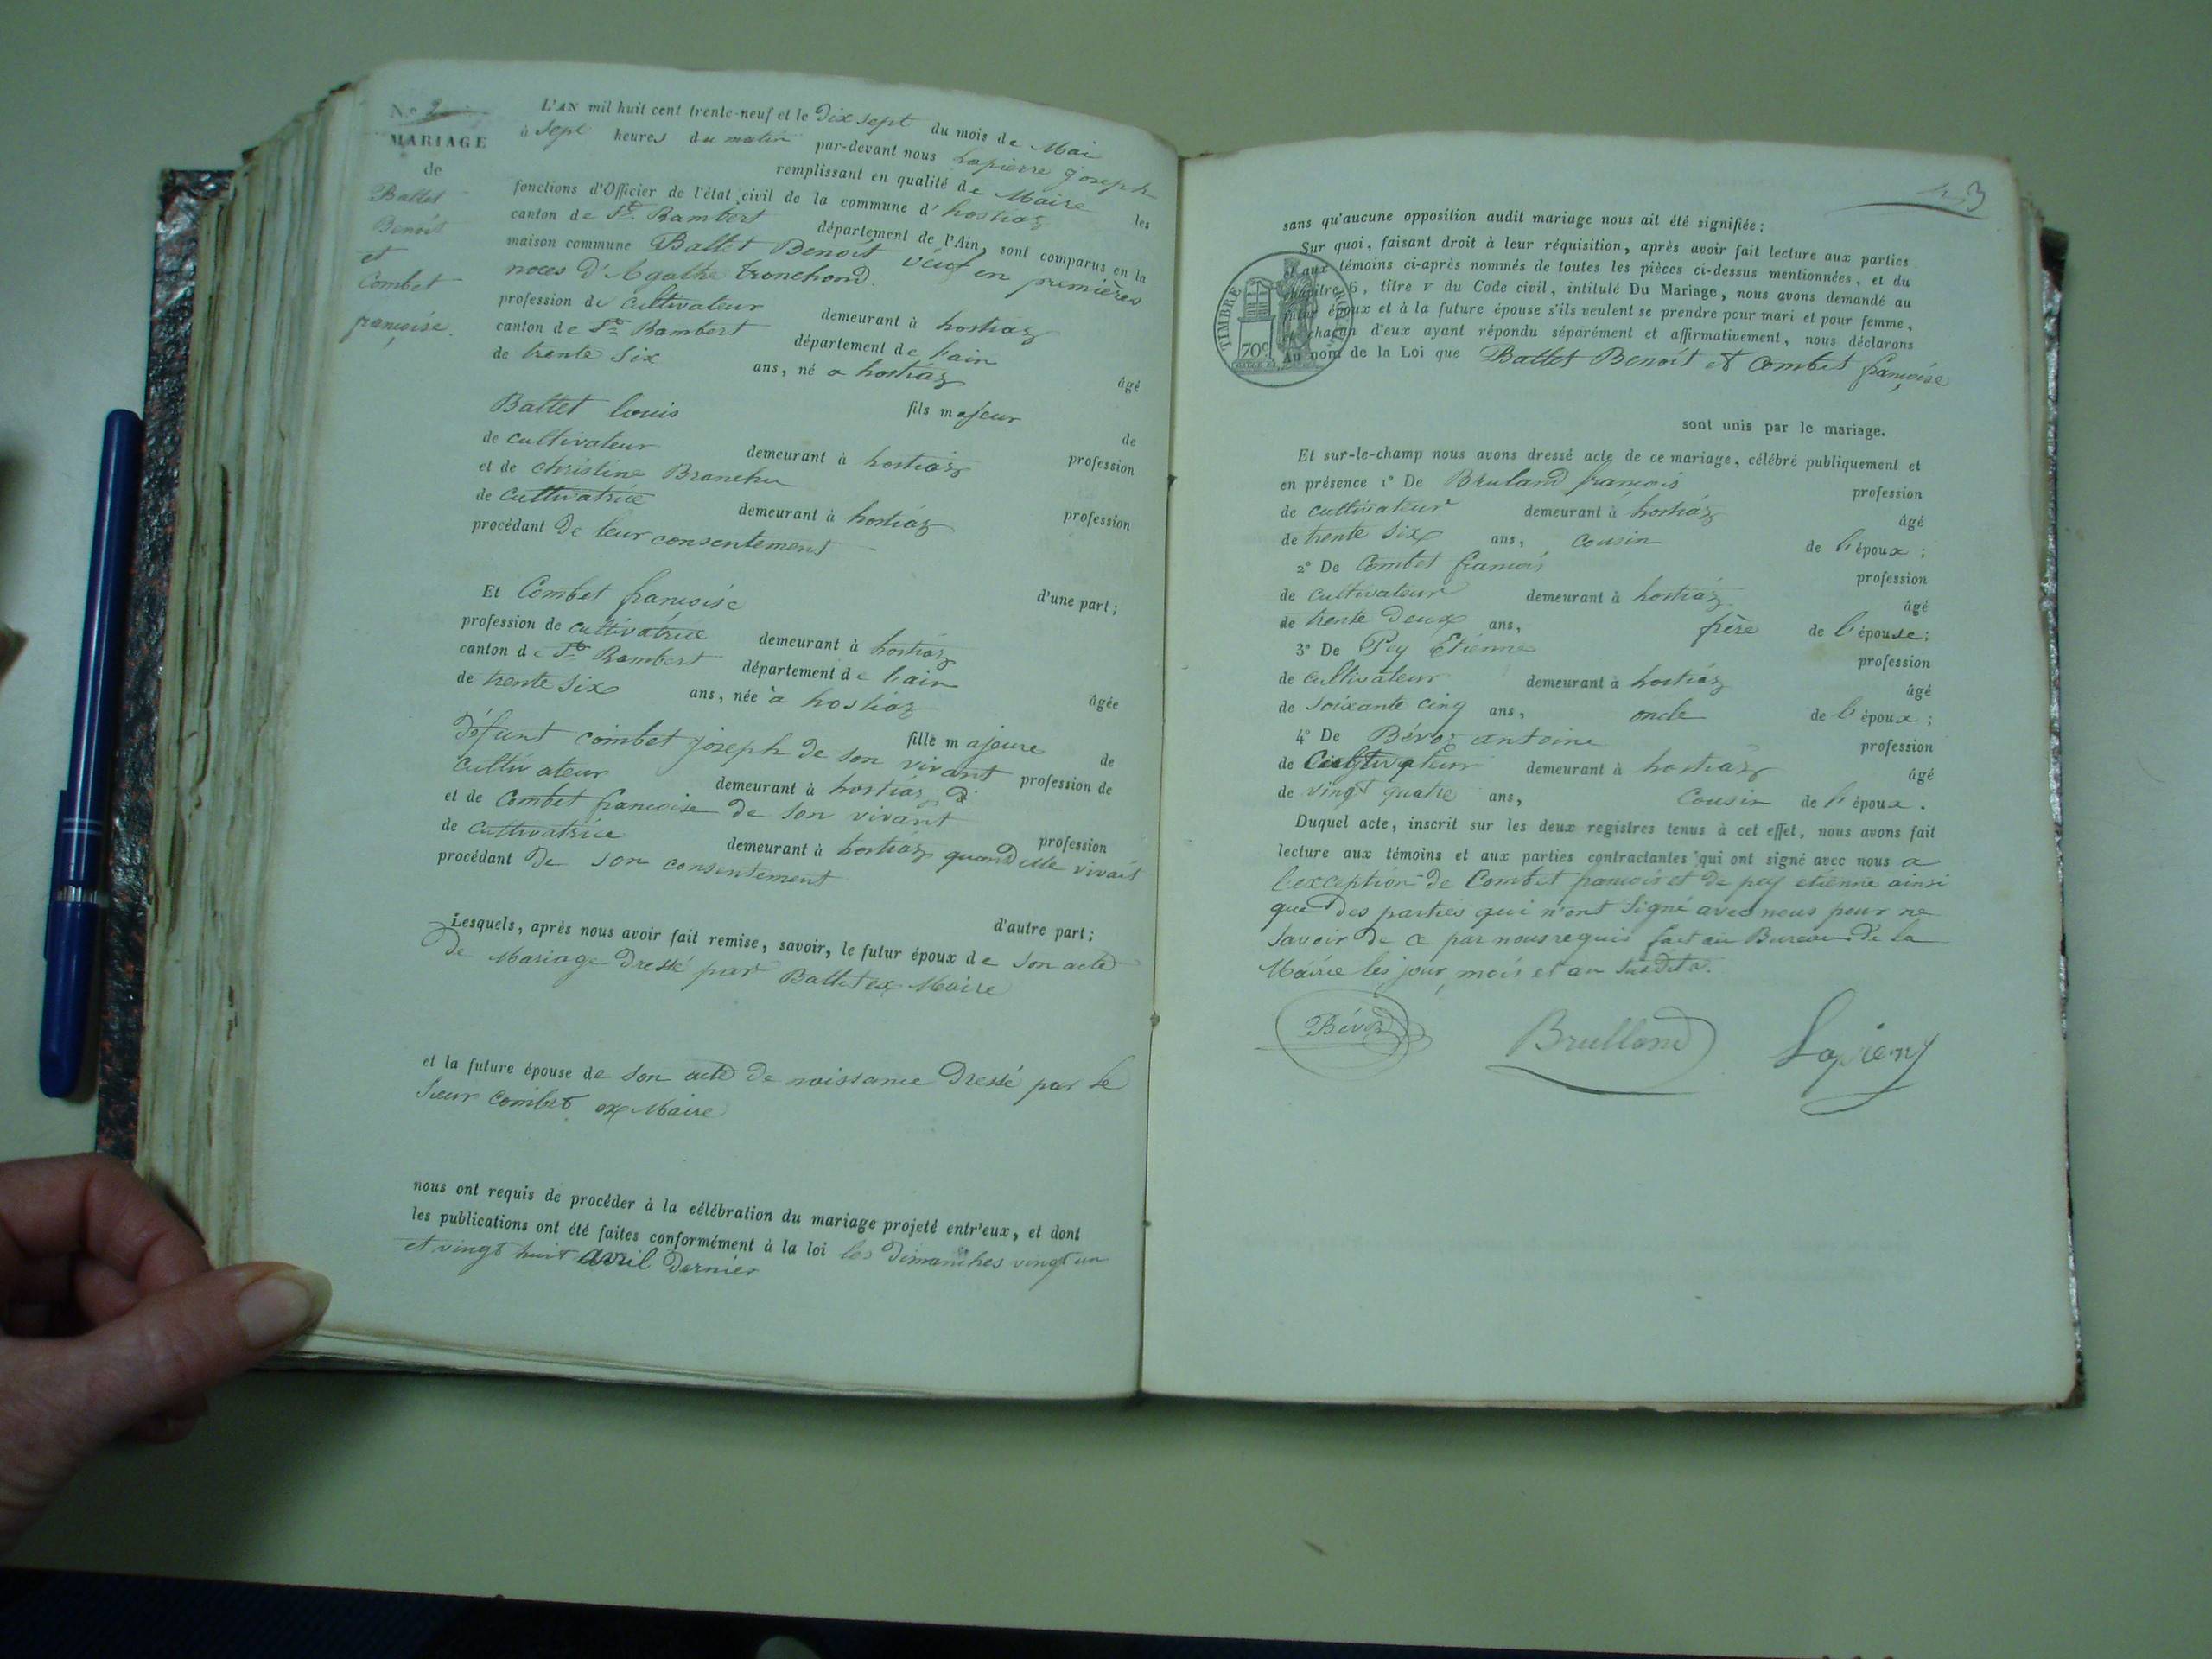 N.º 2
MARIAGE
de
Ballet
Benoît
et
Combet
françoise.
L'AN mil huit cent trente-neuf et le Dix sept du mois de Mai
à Sept heures du matin par-devant nous Lapierre joseph
remplissant en qualité de Maire les
fonctions d'Officier de l'état civil de la commune d'hostiaz
canton de St. Rambert département de l'Ain, sont comparus en la
maison commune Ballet Benoît veuf en premières
noces d'Agathe tronchond.
profession de cultivateur demeurant à hostiaz
canton de St. Rambert département de l'ain
de trente Six ans, né a hostiaz âgé
fils majeur de
Ballet louis profession
de cultivateur demeurant à hostiaz
et de christine Branchu profession
de cultivatrice demeurant à hostiaz
procédant de leur consentement
d'une part;
Et Combet françoise
profession de cultivatrice demeurant à hostiaz
canton de St. Rambert département de l'ain
de trente Six ans, née à hostiaz âgée
fille majeure de
défunt combet joseph de son vivant profession de
cultivateur demeurant à hostiaz
et de Combet françoise de son vivant profession
de cultivatrice demeurant à hostiaz quand elle vivait
procédant de son consentement
d'autre part;
Lesquels, après nous avoir fait remise, savoir, le futur époux de son acte
de Mariage Dressé par Ballet ex Maire
et la future épouse de son acte de naissance Dressé par le
Sieur Combet ex Maire
nous ont requis de procéder à la célébration du mariage projeté entr'eux, et dont
les publications ont été faites conformément à la loi les dimanches vingt un
et vingt huit avril dernier
3
sans qu'aucune opposition audit mariage nous ait été signifiée;
Sur quoi, faisant droit à leur réquisition, après avoir fait lecture aux parties
et aux témoins ci-après nommés de toutes les pièces ci-dessus mentionnées, et du
chapitre 6, titre v du Code civil, intitulé Du Mariage, nous avons demandé au
futur époux et à la future épouse s'ils veulent se prendre pour mari et pour femme,
et chacun d'eux ayant répondu séparément et affirmativement, nous déclarons
Au nom de la Loi que Ballet Benoît et Combet françoise
TIMBRE ROYAL
70c
sont unis par le mariage.
Et sur-le-champ nous avons dressé acte de ce mariage, célébré publiquement et
en présence 1º De Bruland françois profession
de cultivateur demeurant à hostiaz âgé
de trente Six ans, cousin de l'époux;
2º De Combet francois profession
de cultivateur demeurant à hostiaz âgé
de trente deux ans, frère de l'épouse;
3º De Pey Etienne profession
de cultivateur demeurant à hostiaz âgé
de soixante cinq ans, oncle de l'époux;
4º De Bévoz antoine profession
de Cultivateur demeurant à hostiaz âgé
de vingt quatre ans, cousin de l'époux.
Duquel acte, inscrit sur les deux registres tenus à cet effet, nous avons fait
lecture aux témoins et aux parties contractantes qui ont signé avec nous a
l'exception de Combet francois et de pey etienne ainsi
que des parties qui n'ont Signé avec nous pour ne
Savoir de ce par nous requis fait au Bureau de la
Mairie les jour, mois et an susdits.
Bévoz Brulland Lapierre